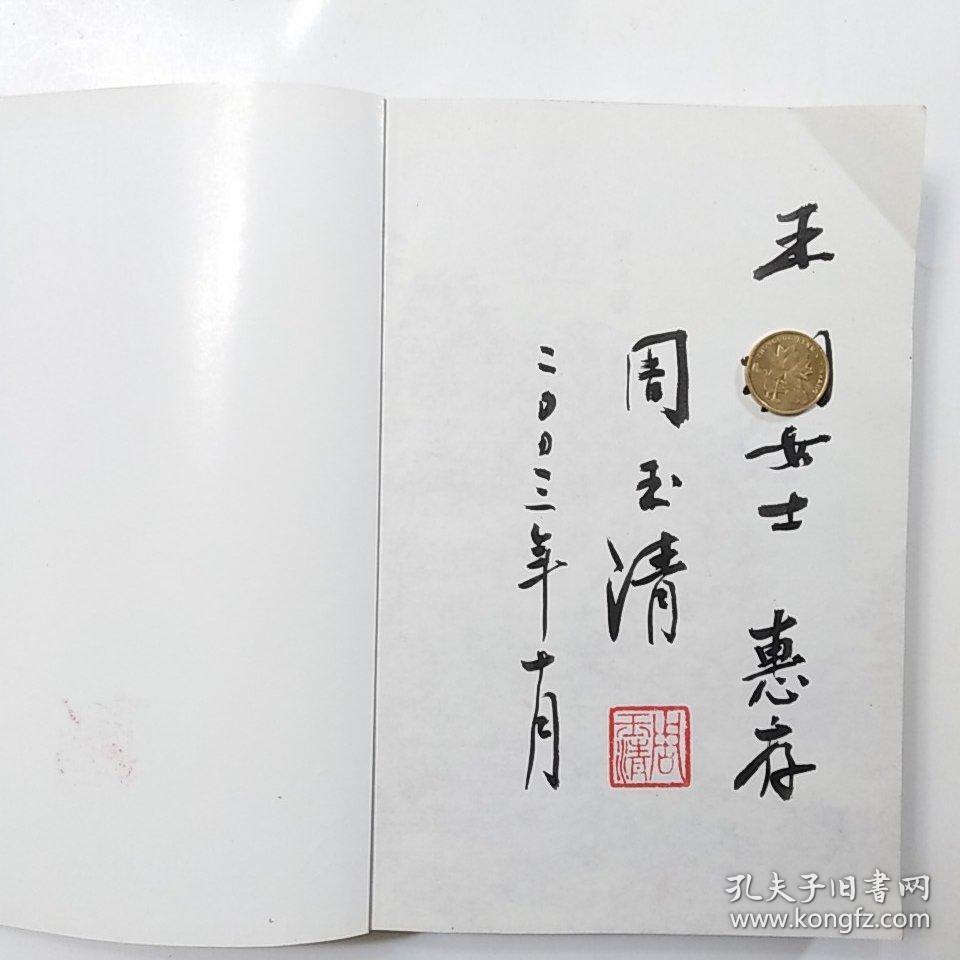 王 女士 惠存
周玉清
二00三年十月
周玉清
孔夫子旧书网
www.kongfz.com